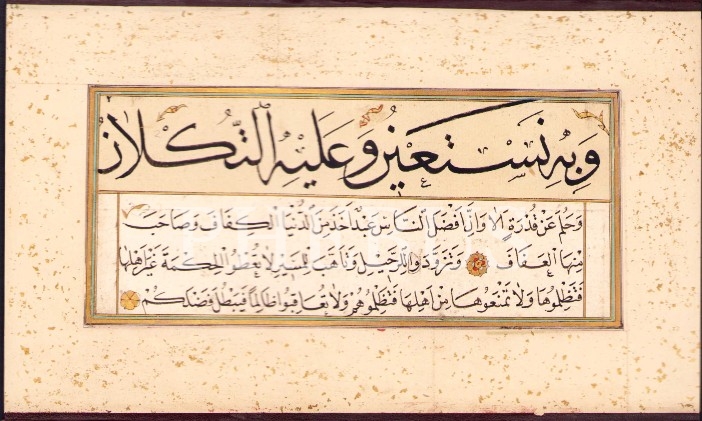 وَبِهِ نَسْتَعِينُ وَعَلَيْهِ التُّكْلَانُ
وَحَلُمَ عَنْ قُدْرَةٍ اَلَا وَاِنَّ اَفْضَلَ النَّاسِ عَبْدٌ اَخَذَ مِنَ الدُّنْيَا الْكَفَافَ وَصَاحَبَ
مِنْهَا الْعَفَافَ وَتَزَوَّدَ لِلرَّحِيلِ وَتَاَهَّبَ لِلْمَسِيرِ لَا تُعْطُوا الْحِكْمَةَ غَيْرَ اَهْلِهَا
فَتَظْلِمُوهَا وَلَا تَمْنَعُوهَا مِنْ اَهْلِهَا فَتَظْلِمُوهُمْ وَلَا تُعَاقِبُوا ظَالِمًا فَيَبْطُلَ فَضْلُكُمْ